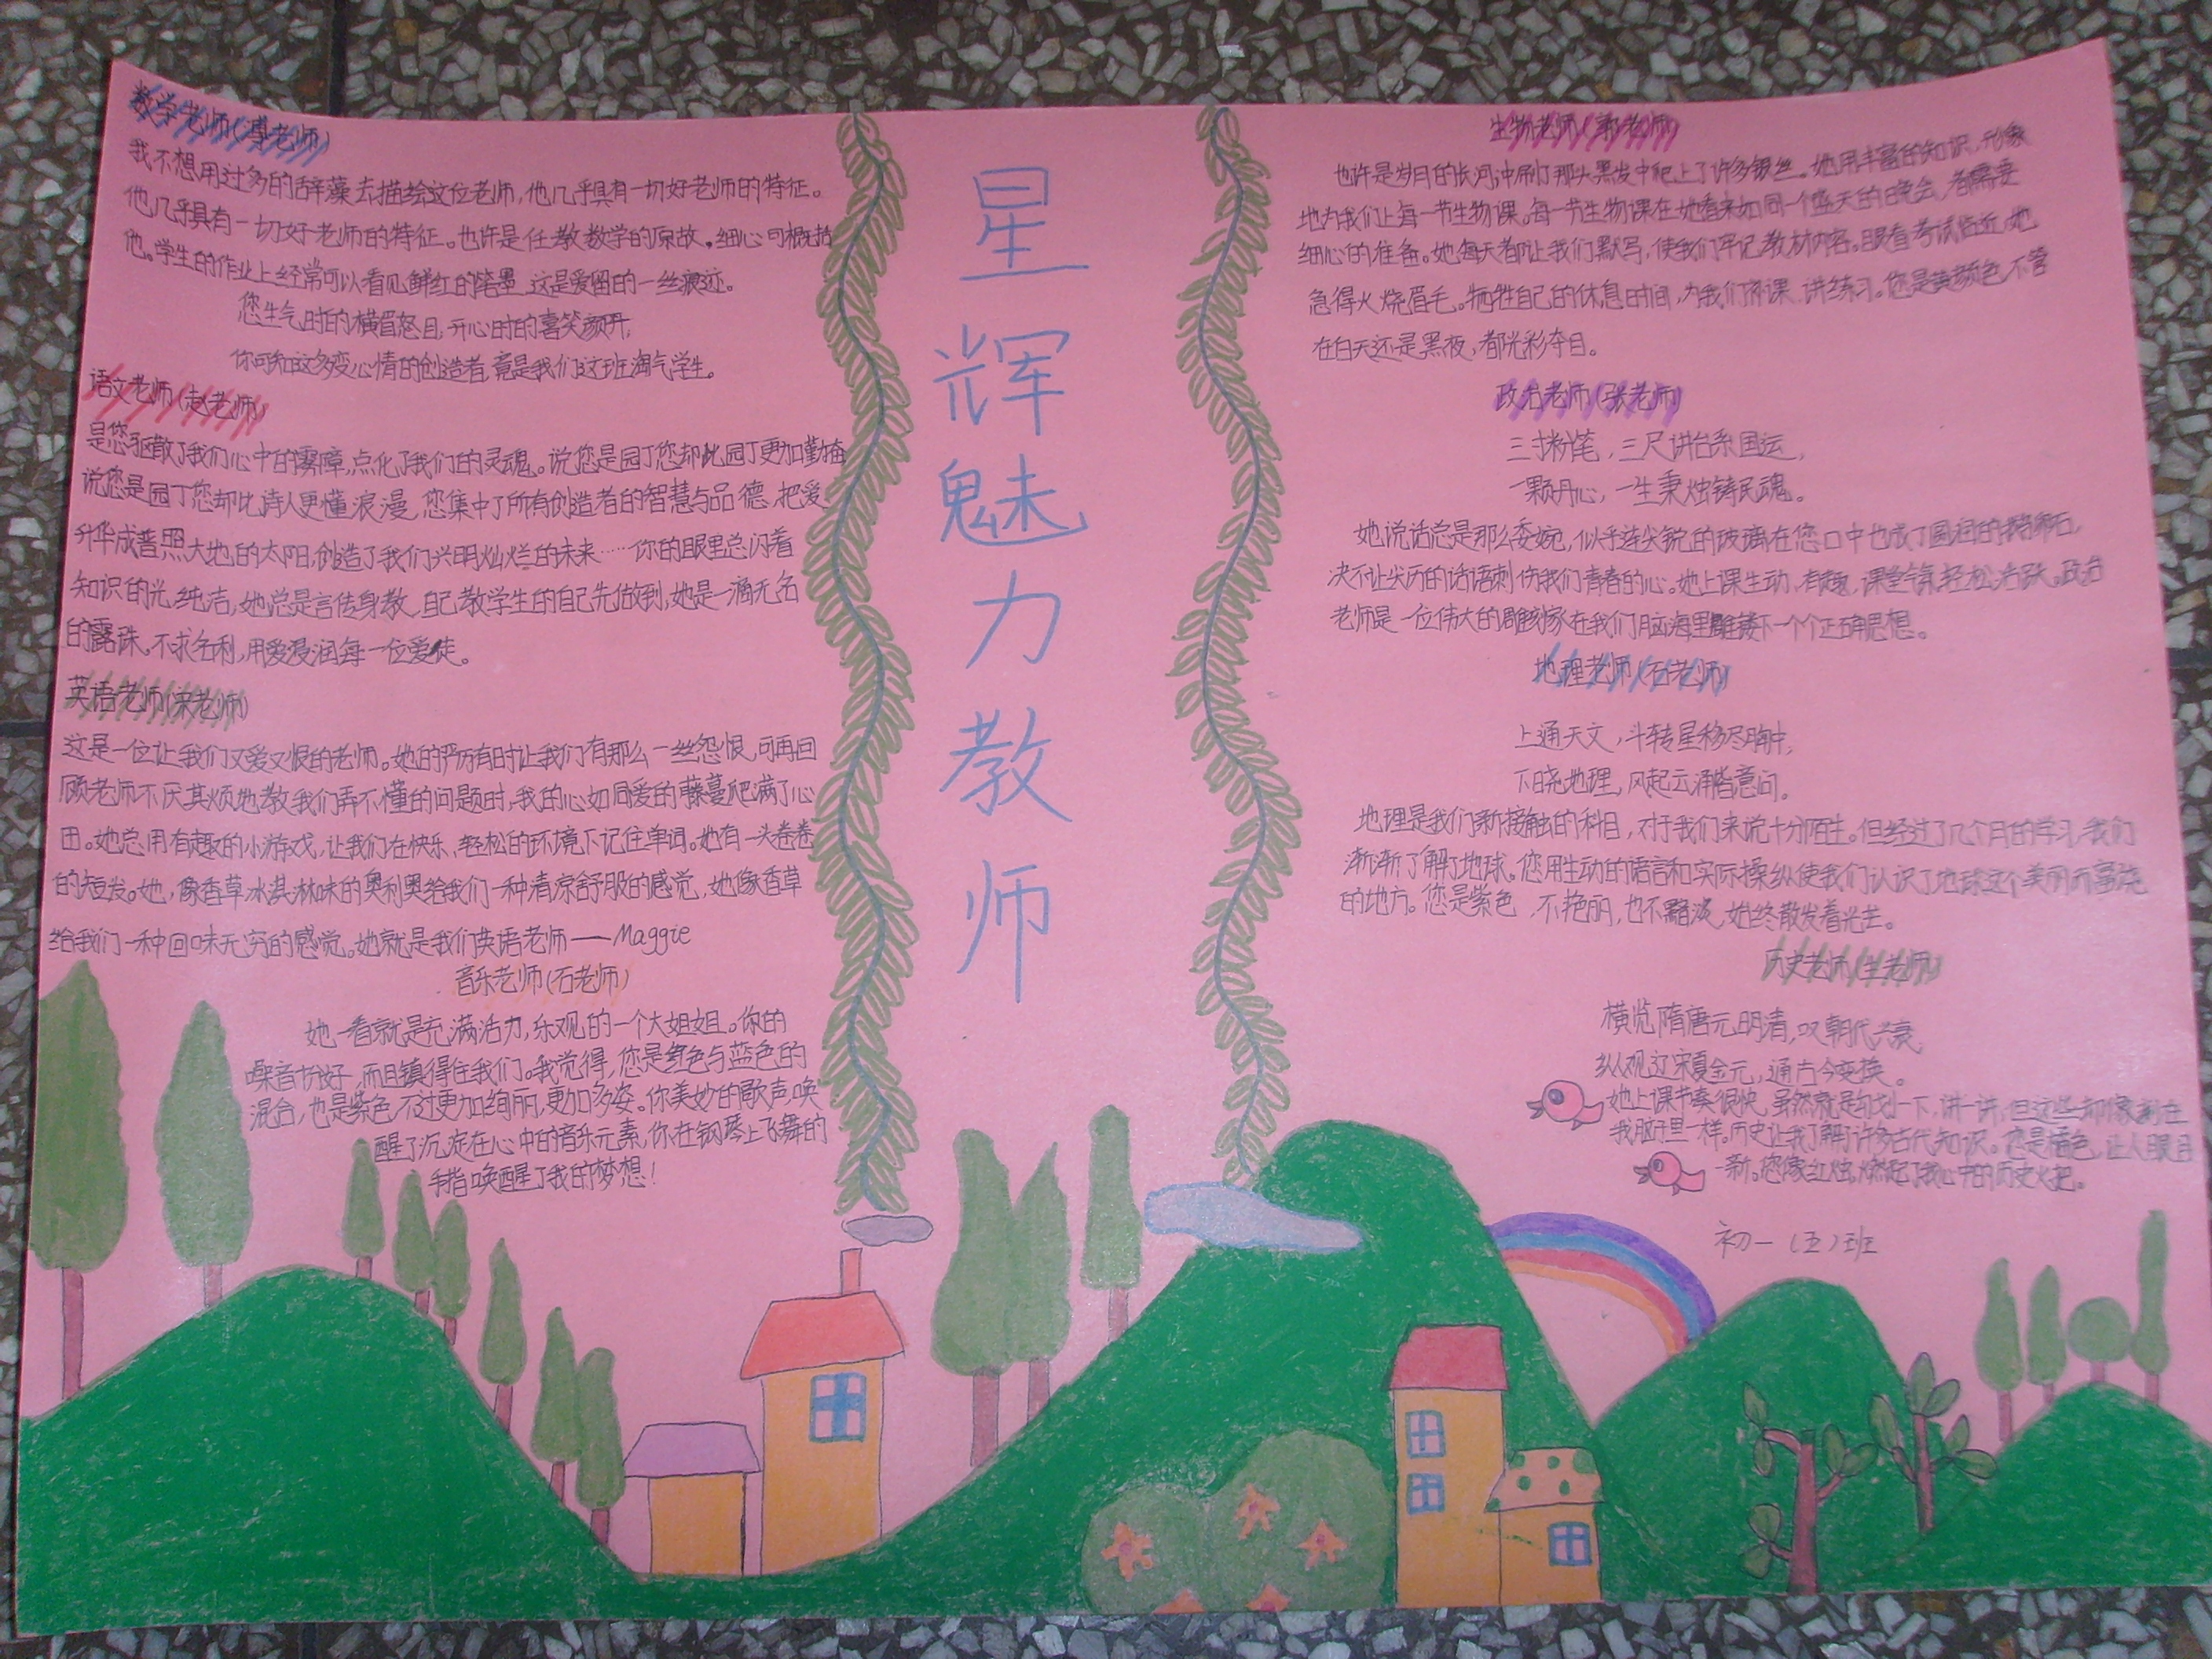 数学老师(冯老师)
我不想用过多的辞藻去描绘这位老师,他几乎具有一切好老师的特征。
他几乎具有一切好老师的特征。也许是任教数学的原故,细心可概括
他。学生的作业上经常可以看见鲜红的 墨,这是爱留的一丝痕迹。
您生气时的横眉怒目,开心时的喜笑颜开,
你可知这多变心情的创造者,竟是我们这班淘气学生。
语文老师(赵老师)
是您驱散了我们心中的雾障,点化了我们的灵魂。说您是园丁您却比园丁更加勤奋
说您是园丁您却比诗人更懂浪漫,您集中了所有创造者的智慧与品德,把爱
升华成普照大地的太阳,创造了我们兴明灿烂的未来……你的眼里总闪着
知识的光,纯洁,她总是言传身教,自己教学生的自己先做到,她是一滴无名
的露珠。不求名利,用爱浸润每一位爱徒。
英语老师(宋老师)
这是一位让我们又爱又恨的老师。她的严厉有时让我们有那么一丝怨恨,可再回
顾老师不厌其烦地教我们弄不懂的问题时,我的心如同爱的藤蔓爬满了心
田。她总用有趣的小游戏,让我们在快乐、轻松的环境下记住单词。她有一头卷卷
的短发。她,像香草冰淇淋味的奥利奥给我们一种清凉舒服的感觉,她像香草
给我们一种回味无穷的感觉。她就是我们英语老师——Maggie
音乐老师(石老师)
她一看就是充满活力,乐观的一个大姐姐。你的
嗓音切好,而且镇得住我们。我觉得,您是红色与蓝色的
混合,也是紫色,不过更加绚丽,更加多姿。你美妙的歌声,唤
醒了沉淀在心中的音乐元素,你在钢琴上飞舞的
手指唤醒了我的梦想!
星辉魅力教师
生物老师(郭老师)
也许是岁月的长河,冲刷了那头黑发中爬上了许多银丝。她用丰富的知识,形象
地为我们上每一节生物课。每一节生物课在她看来如同一个盛天的晚会,都需要
细心的准备。她每天都让我们默写,使我们牢记教材内容。眼看考试临近,她
急得火烧眉毛。牺牲自己的休息时间,为我们 课、讲练习。您是黄颜色,不管
在白天还是黑夜,都光彩夺目。
政治老师(张老师)
三寸粉笔,三尺讲台系国运,
一颗丹心,一生秉烛铸民魂。
她说话总是那么委婉,似乎连尖锐的玻璃在您口中也成了圆润的鹅卵石,
决不让尖历的话语刺伤我们青春的心。她上课生动,有趣,课堂气氛轻松活跃。政治
老师是一位伟大的雕刻家在我们脑海里雕镂下一个个正确思想。
地理老师(石老师)
上通天文,斗转星移尽胸中,
下晓地理,风起云涌皆意间。
地理是我们新接触的科目,对于我们来说十分陌生。但经过了几个月的学习,我们
渐渐了解了地球。您用生动的语言和实际操纵使我们认识了地球这个美丽而富饶
的地方。您是紫色,不艳丽,也不黯淡,始终散发着光芒。
历史老师(王老师)
横览隋唐元明清,叹朝代兴衰,
纵观辽宋夏金元,通古今变换。
她上课节奏很快,虽然就是勾划一下,讲一讲,但这些却像刻在
我脑子里一样。历史让我了解了许多古代知识。您是橘色,让人眼目
一新。您像红烛,燃起了我心中的历史火把。
初一(五)班